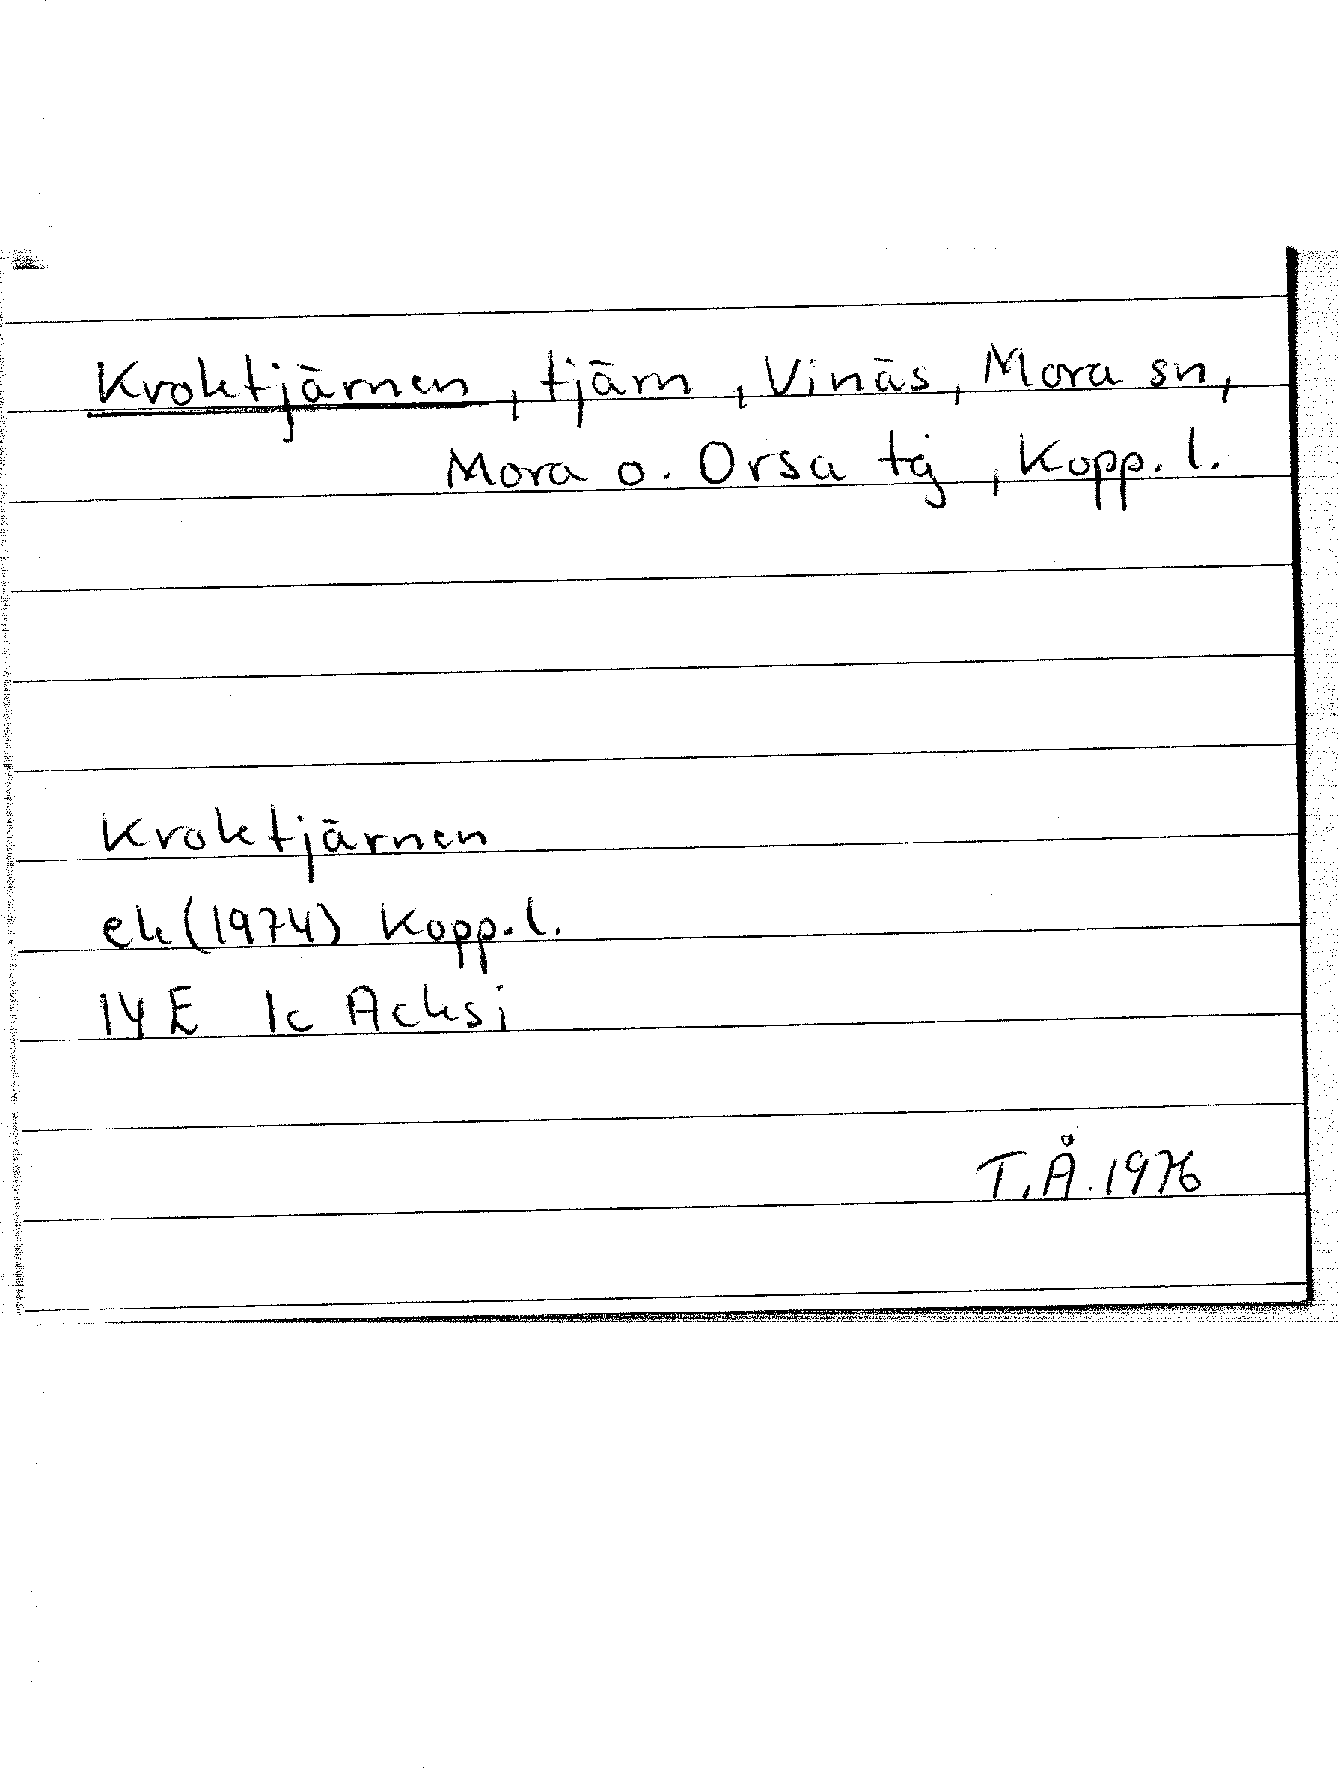 Kroktjärnen, tjärn, Vinäs, Mora sn,
Mora o. Orsa tg, Kopp. l.
Kroktjärnen
ek (1974) Kopp. l.
14 E 1c Acksi
T.Å. 1976